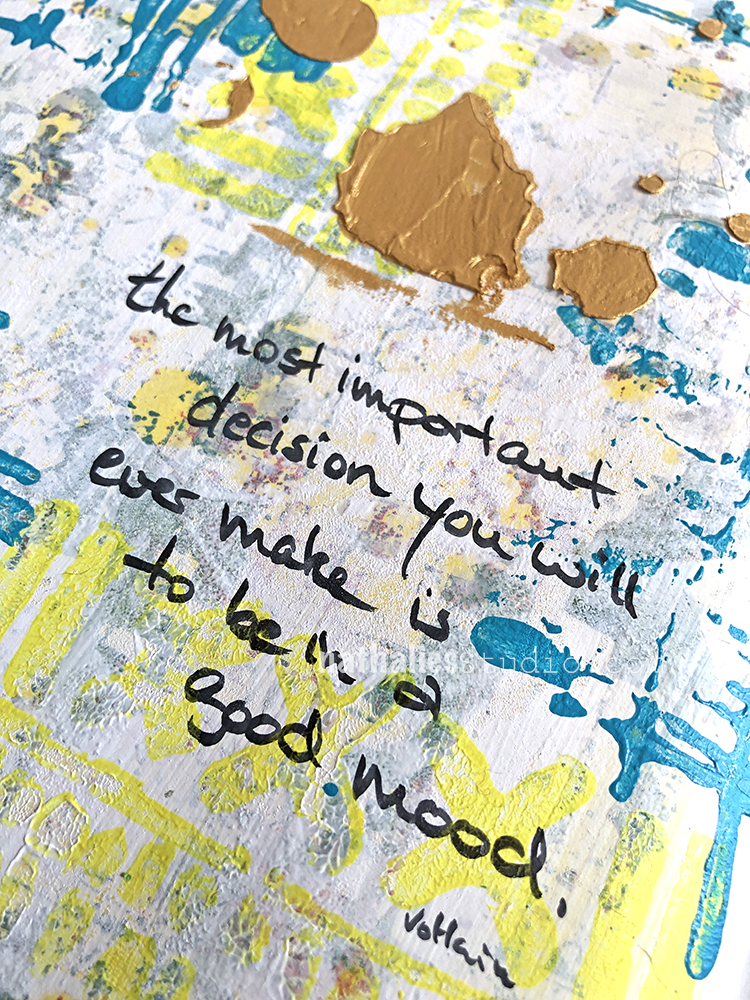 the most important
decision you will
ever make is
to be in a
good mood.
Voltaire
nathaliesstudio.com